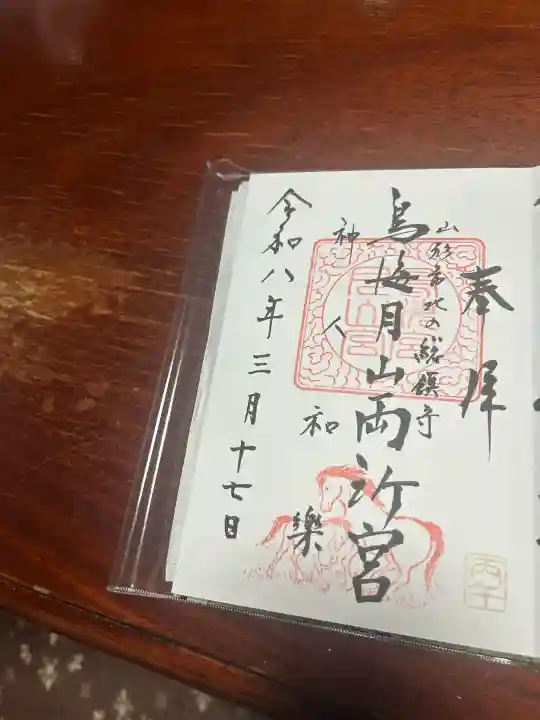 奉拝
山形市北の総鎮守
鳥海月山両所宮
神人和樂
令和八年三月十七日
丙午